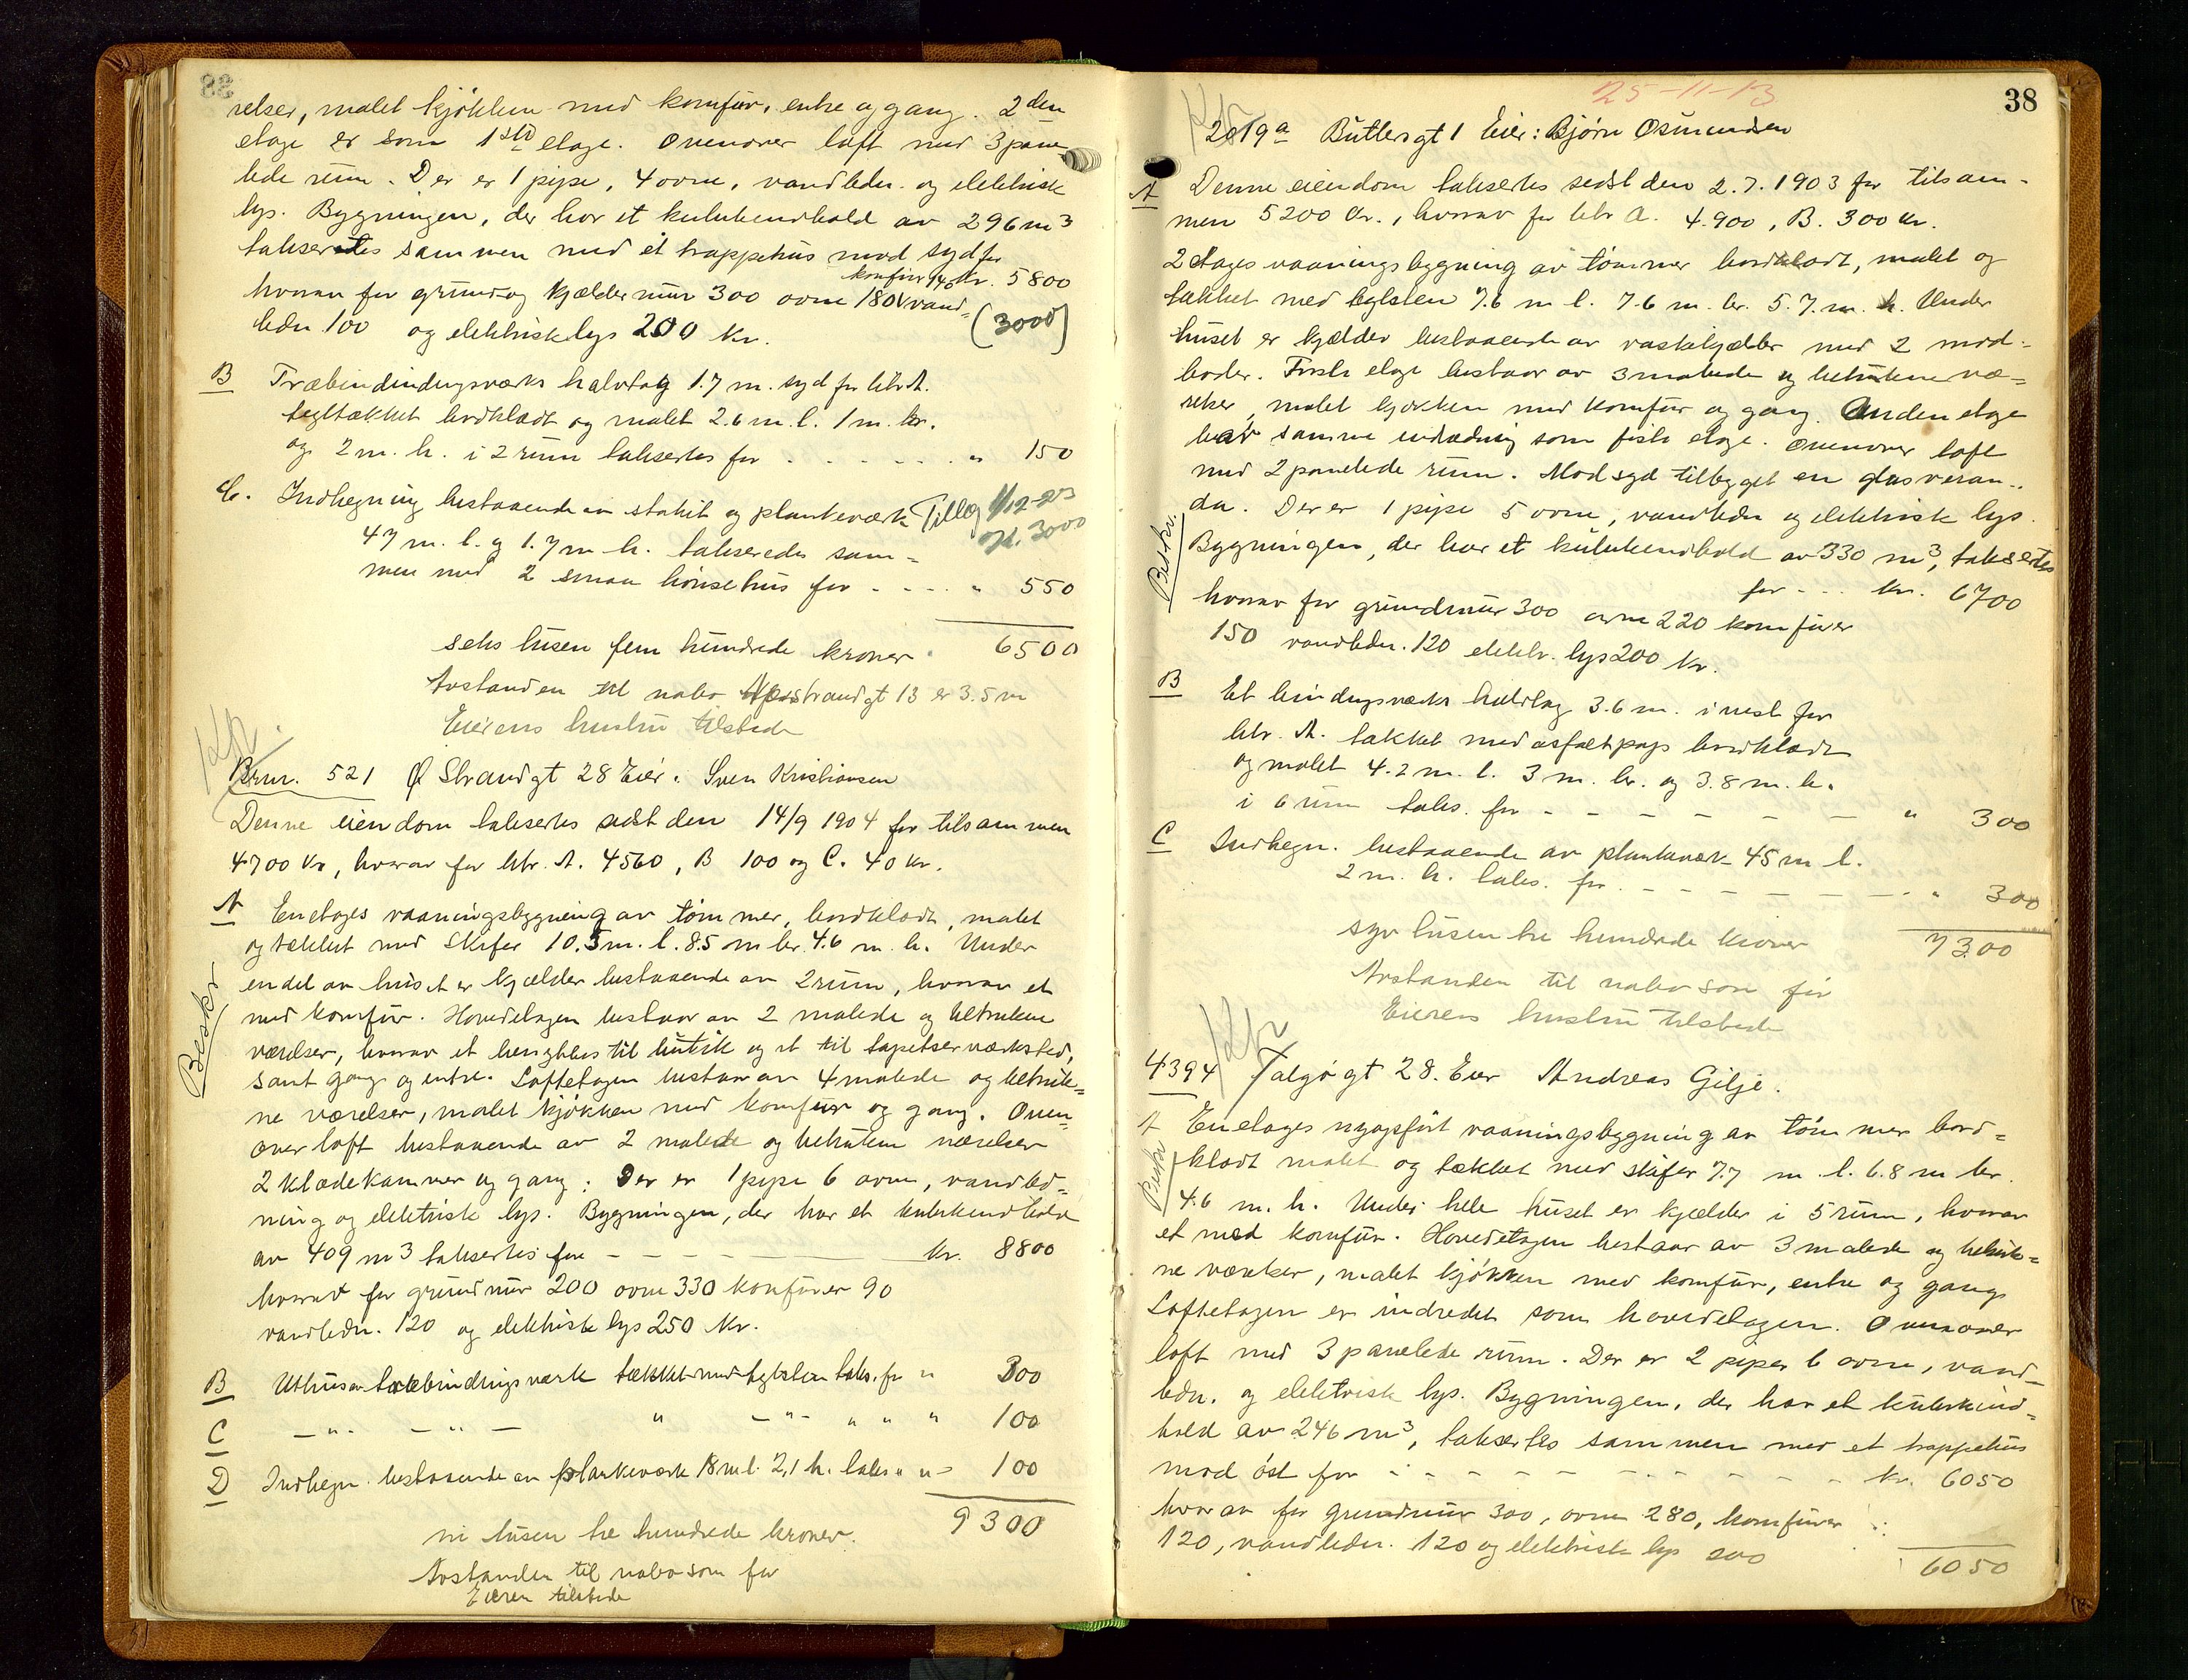 relser, malet kjökken med komfür, entre og gang. 2den
etage er som 1ste etage. Ovenover loft med 3 pane
lede rüm. Der er 1 pipe, 4 ovne, vandledn. og elektrisk
lys. Bygningen, der har et kubikindhold av 296 m3
taksertes sammen med et trappehüs mod syd for
komfür 140 kr. 5800
hvorav for grund og kjældermür 300 ovne 180 vand=
ledn. 100 og elektrisk lys 200 Kr. (3000)
B Træbindindingsværks halvtag 1.7 m. syd for litr A.
tegltækket bordklædt og malet 2.6 m. l. 1 m. br.
og 2 m. h. i 2 rüm taksertes for - - - - - " 150
C. Indhegning bestaaende av stakit og plankeværk Tillæg 1/12-23
47 m. l. og 1.7 m. h. takseredes sam= 3000
men med 2 smaa hönsehüs for - - - - " 550
6500
seks tusen fem hündrede kroner
Avstanden til nabo strandgt 13 er 3.5 m
Eierens hustrü tilstede
Brnr. 521 Ø Strandgt 28 Eier: Sven Kristiansen
Denne eiendom taksertes sidst den 14/9 1904 for tilsammen
4700 Kr, hvorav for litr. A. 4560, B 100 og C. 40 kr.
A Enetages vaaningsbygning av tömmer, bordklædt, malet
og tækket med Skifer 10.5 m. l. 8.5 m br. 4.6 m. h. Under
Beskr
en del av hüset er kjælder bestaaende av 2 rüm, hvorav et
med komfür. Hovedetagen bestaar av 2 malede og betrukne
værelser, hvorav et benyttes til butik og et til tapetserværksted,
samt gang og entre. Loftetagen bestaar av 4 malede og betruk=
ne værelser, malet kjökken med komfür og gang. Oven=
over loft bestaaende av 2 malede og betrukne værelser
2 klædekammer og gang. Der er 1 pipe 6 ovne, vandled=
ning og elektrisk lys. Bygningen, der har et kubikindhold
av 409 m3 taksertes for - - - - kr. 8800
hvorav for grundmür 200 ovne 330 komfürer 90
vandledn. 120 og elektrisk lys 250 Kr.
B Uthüs av træbindingsverk tækket med teglsten taks. for " 300
C - " - - " - " - " - " " " 100
D Indhegn. bestaaende av plankeværk 18 m l. 2,1 h. taks " " = 100
9300
ni tüsen tre hundrede kroner.
Avstanden til nabo som för
Eieren tilstede
25-11-13
38
2019a Butlersgt 1 Eier: Bjørn Osmundsen
A Denne eiendom taksertes sidst den 2.7.1903 for tilsam-
men 5200 Kr., hvorav for litr a. 4.900, B. 300 kr.
2 etages vaaningsbygning av tömmer bordklædt, malet og
tækket med teglsten 7.6 m l. 7.6 m. br. 5.7. m. h. Under
hüset er kjælder bestaaende av vaskekjælder med 2 mad=
boder. Förste etage bestaar av 3 malede og betrukne væ=
relser, malet kjøkken med komfür og gang. Anden etage
har samme indredning som förste etage. Ovenover loft
med 2 panelede rüm. Mod syd tilbygget en glasveran=
da. Der er 1 pipe 5 ovne, vandledn og elektrisk lys.
Beskr.
Bygningen, der har et kubikindhold av 330 m3, taksertes
for - - - kr. 6700
hvorav for grundmür 300 ovne 220 komfürer
150 vandledn. 120 elektr. lys 200 Kr.
B Et bindingsværks halvtag 3.6 m. i vest for
litr. A. takket med asfaltpap bordklædt
og malet 4.2 m. l. 3 m. br. og 3.8 m. h.
i 6 rüm taks. for - - - - - - " 300
C Indhegn. bestaaende av plankeværk 45 m l.
2 m. h. taks. for. - - - - - - - " 300
syv tüsen tre hundrede kroner 7300
Avstanden til nabo som för
Eierens hustrü tilstede
4394 Talgø gt 28. Eier Andreas Gilje.
A Enetages nyopfört vaaningsbygning av tömmer bord=
Beskr
klædt malet og tækket med skifer 7.7 m. l. 6.8 m br.
4.6 m. h. Under hele hüset er kjælder i 5 rüm, hvorav
et med komfür. Hovedetagen bestaar av 3 malede og betruk=
ne værelser, malet kjökken med komfür, entre og gang
Loftetagen er indredet som hovedetagen. Ovenover
loft med 3 panelede rüm. Der er 2 piper 6 ovne, vand-
ledn. og elektrisk lys. Bygningen, der har et kubikind=
hold av 246 m3, taksertes sammen med et trappehüs
mod öst for - - - - - - - - kr. 6050
hvorav for grundmür 300, ovne 280, komfürer
120, vandledn. 120 og elektrisk lys 200
6050